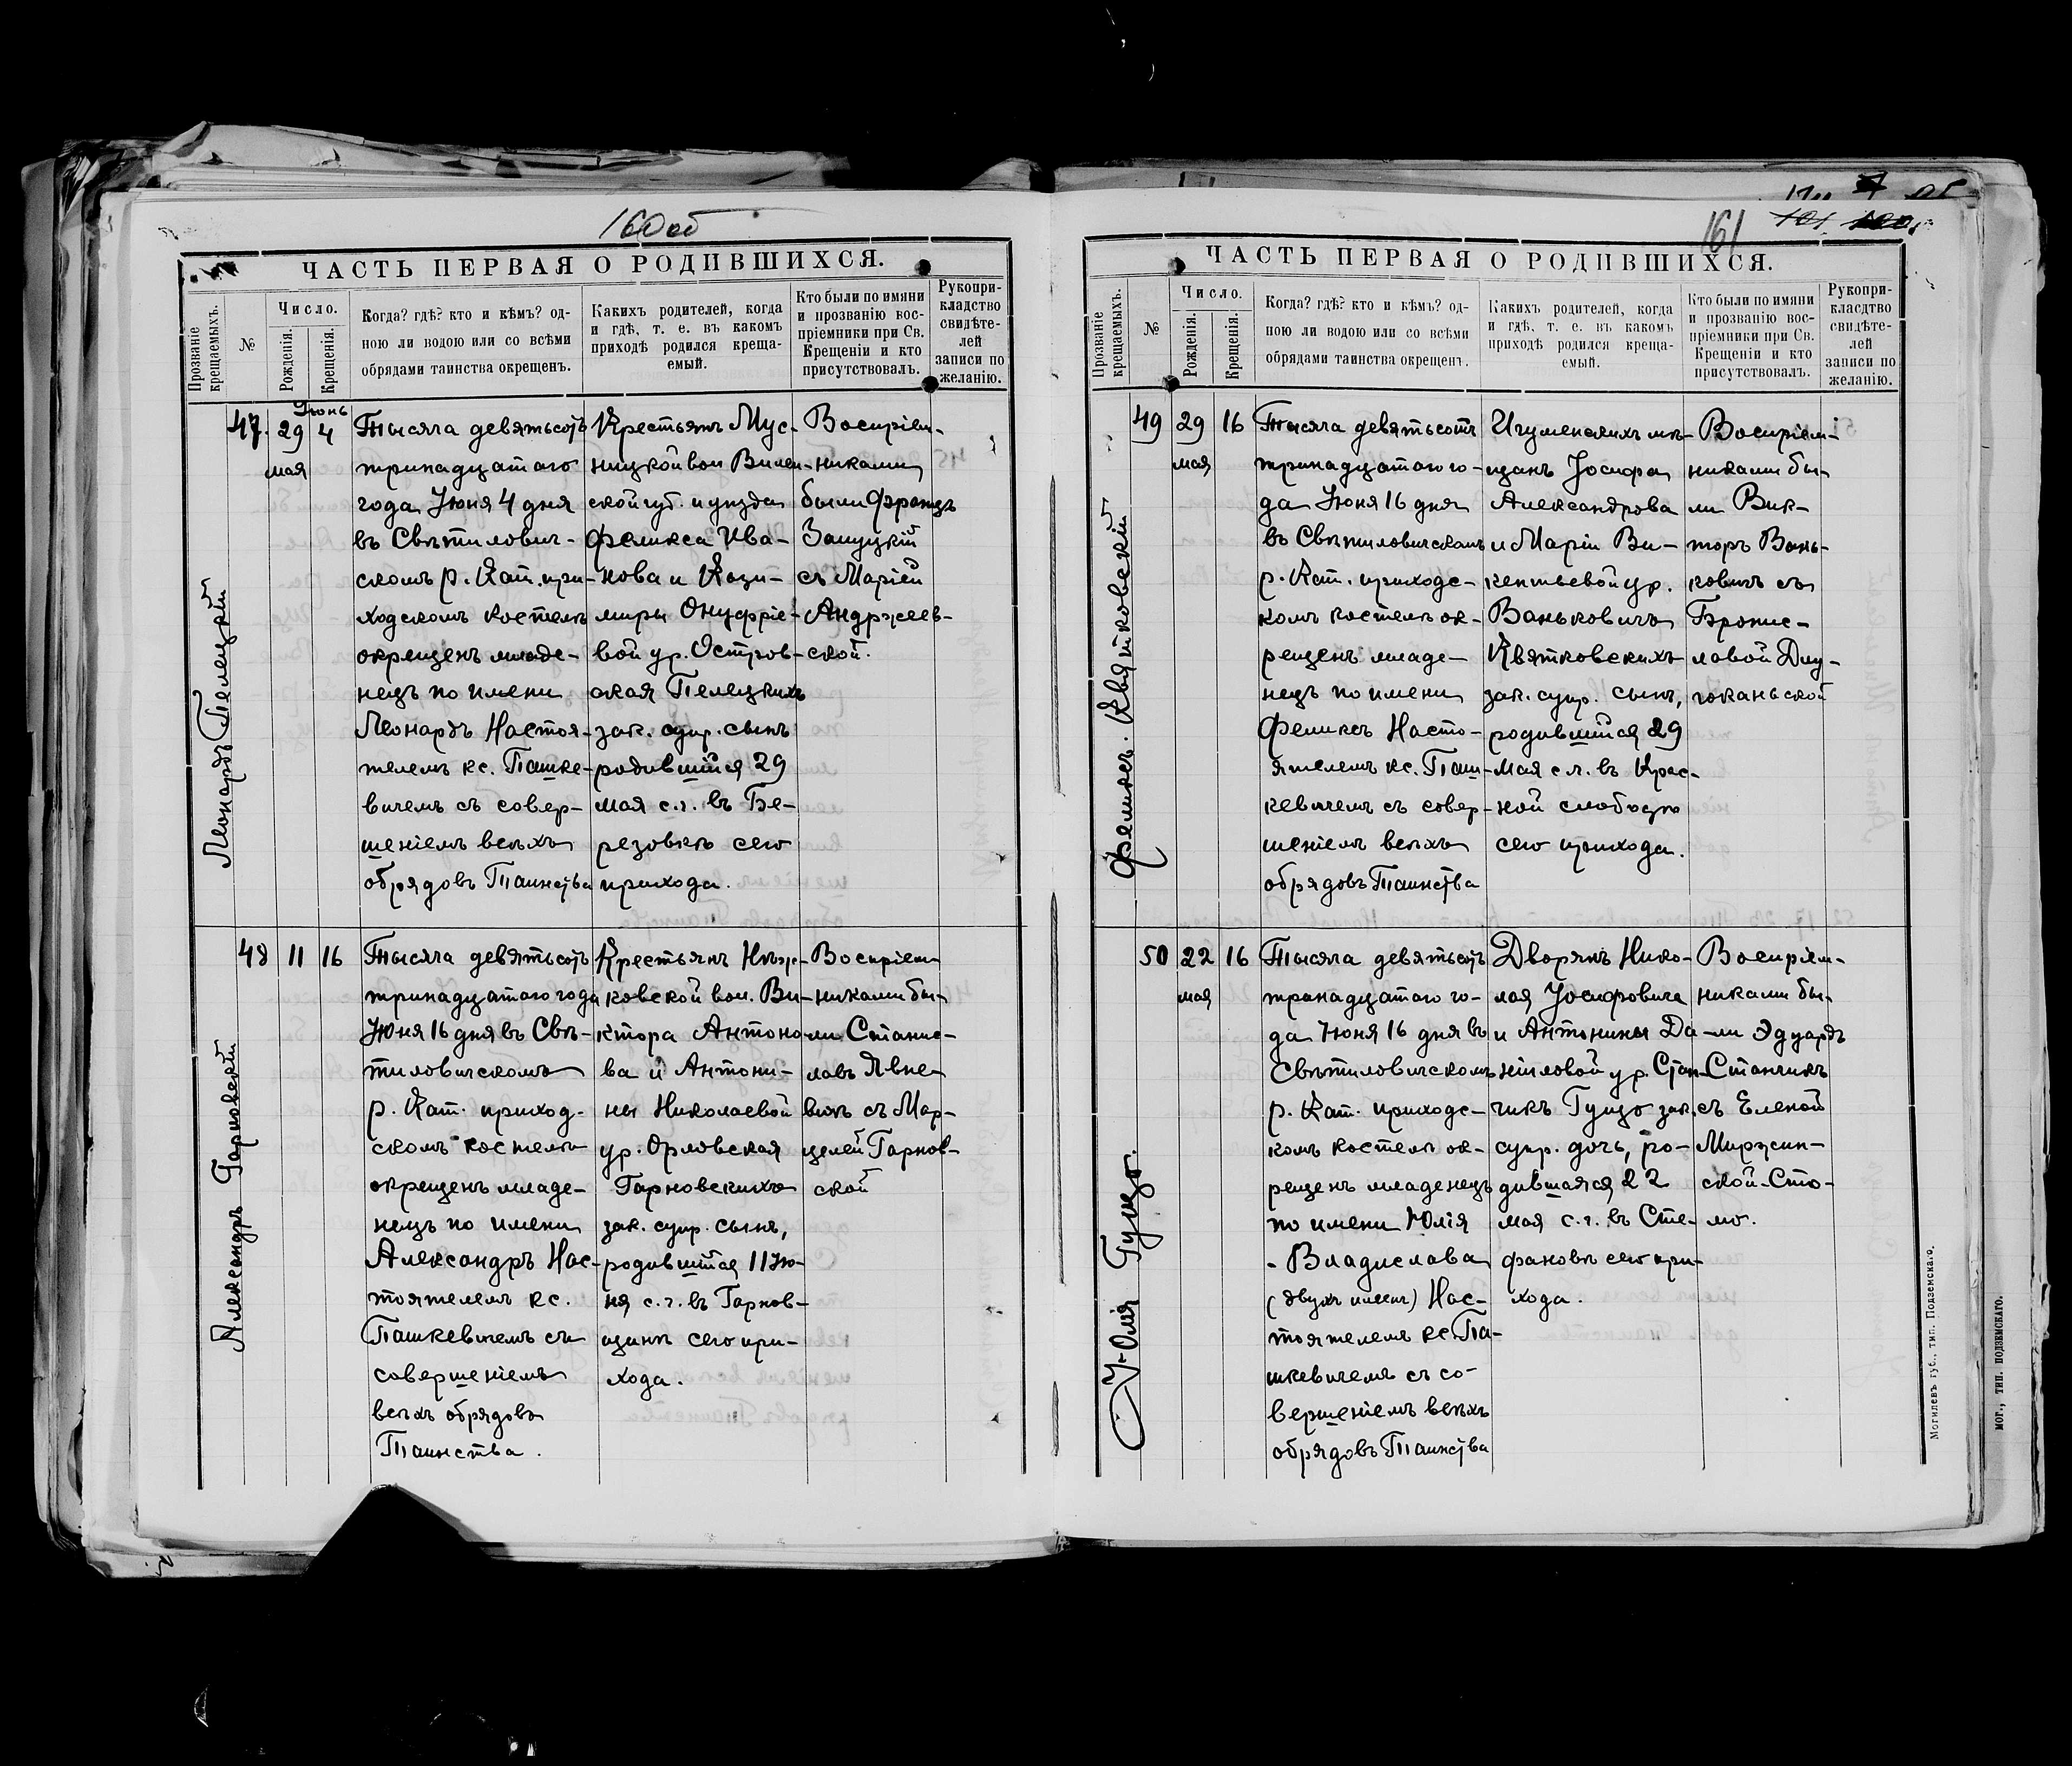 160об
ЧАСТЬ ПЕРВАЯ О РОДИВШИХСЯ.
Прозваніе крещаемыхъ.
№
Число.
Рожденія.
Крещенія.
Когда? гдѣ? кто и кѣмъ? од-
ною ли водою или со всѣми
обрядами таинства окрещенъ.
Какихъ родителей, когда
и гдѣ, т. е. въ какомъ
приходѣ родился креща-
емый.
Кто были по имяни
и прозванію вос-
пріемники при Св.
Крещеніи и кто
присутствовалъ.
Рукопри-
кладство
свидѣте-
лей
записи по
желанію.
Леонардъ Пелецкій
47.
29
мая
Іюнь
4
Тысяча девятьсотъ
тринадцатаго
года Іюня 4 дня
въ Свѣтилович-
скомъ р. Кат. при-
ходскомъ костелѣ
окрещенъ младе-
нецъ по имени
Леонардъ Настоя-
телемъ кс. Пашке-
вичемъ съ совер-
шеніемъ всѣхъ
обрядовъ Таинства
Крестьянъ Мус-
ницкой вол Вилен-
ской губ. и уѣзда
Феликса Ива-
нова и Кази-
миры Онуфріе-
вой ур. Остров-
ская Пелецкихъ
зак. супр. сынъ
родившійся 29
мая с.г. въ Бе-
резовкѣ сего
прихода.
Воспріем-
никами
были Францъ
Запуцкій
съ Маріей
Андржеев-
ской.
Александръ Гарновскій
48
11
16
Тысяча девятьсотъ
тринадцатаго года
Іюня 16 дня въ Свѣ-
тиловичскомъ
р. Кат. приход-
скомъ костелѣ
окрещенъ младе-
нецъ по имени
Александръ Нас-
тоятелемъ кс.
Пашкевичемъ съ
совершеніемъ
всѣхъ обрядовъ
Таинства.
Крестьянъ Нѣж-
ковской вол. Ви-
ктора Антоно-
ва и Антони-
ны Николаевой
ур. Орловская
Гарновскихъ
зак. супр. сынъ,
родившійся 11 Ію-
ня с.г. въ Гарнов-
щинѣ сего при-
хода.
Воспріем-
никами бы-
ли Станис-
лавъ Явне-
вичъ съ Мар-
целей Гарнов-
ской
161
ЧАСТЬ ПЕРВАЯ О РОДИВШИХСЯ.
Прозваніе крещаемыхъ.
№
Число.
Рожденія.
Крещенія.
Когда? гдѣ? кто и кѣмъ? од-
ною ли водою или со всѣми
обрядами таинства окрещенъ.
Какихъ родителей, когда
и гдѣ, т. е. въ какомъ
приходѣ родился креща-
емый.
Кто были по имяни
и прозванію вос-
пріемники при Св.
Крещеніи и кто
присутствовалъ.
Рукопри-
класдтво
свидѣте-
лей
записи по
желанію.
Феликсъ. Квятковскій
49
29
мая
16
Тысяча девятьсотъ
тринадцатаго го-
да Іюня 16 дня
въ Свѣтиловичскомъ
р. Кат. приходс-
комъ костелѣ ок-
рещенъ младе-
нецъ по имени
Феликсъ Насто-
ятелемъ кс. Паш-
кевичемъ съ совер-
шеніемъ всѣхъ
обрядовъ Таинства
Игуменскихъ мѣ-
щанъ Іосифа
Александрова
и Маріи Ви-
кентьевой ур.
Ваньковичъ
Квятковскихъ
зак. супр. сынъ,
родившійся 29
мая с.г. въ Крас-
ной слободѣ
сего прихода.
Воспріем-
никами бы-
ли Вик-
торъ Вань-
ковичъ съ
Бронис-
лавой Длу-
гоканьской
Юлія Гунзо.
50
22
мая
16
Тысяча девятьсотъ
тринадцатаго го-
да Іюня 16 дня въ
Свѣтиловичскомъ
р. Кат. приходс-
комъ костелѣ ок-
рещенъ младенецъ
по имени Юлія
- Владислава
(двухъ именъ) Нас-
тоятелемъ кс. Па-
шкевичемъ съ со-
вершеніемъ всѣхъ
обрядовъ Таинства
Дворянъ Нико-
лая Іосифовича
и Антонины Да-
ніиловой ур. Стан-
чикъ Гунзо зак.
супр. дочь, ро-
дившаяся 22
мая с.г. въ Сте-
фановѣ сего при-
хода.
Воспріем-
никами бы-
ли Эдуардъ
Станчикъ
съ Еленой
Миржин-
ской-Сто-
мо.
Могилевъ губ., тип. Подземскаго.
МОГ., ТИП. ПОДЗЕМСКАГО.